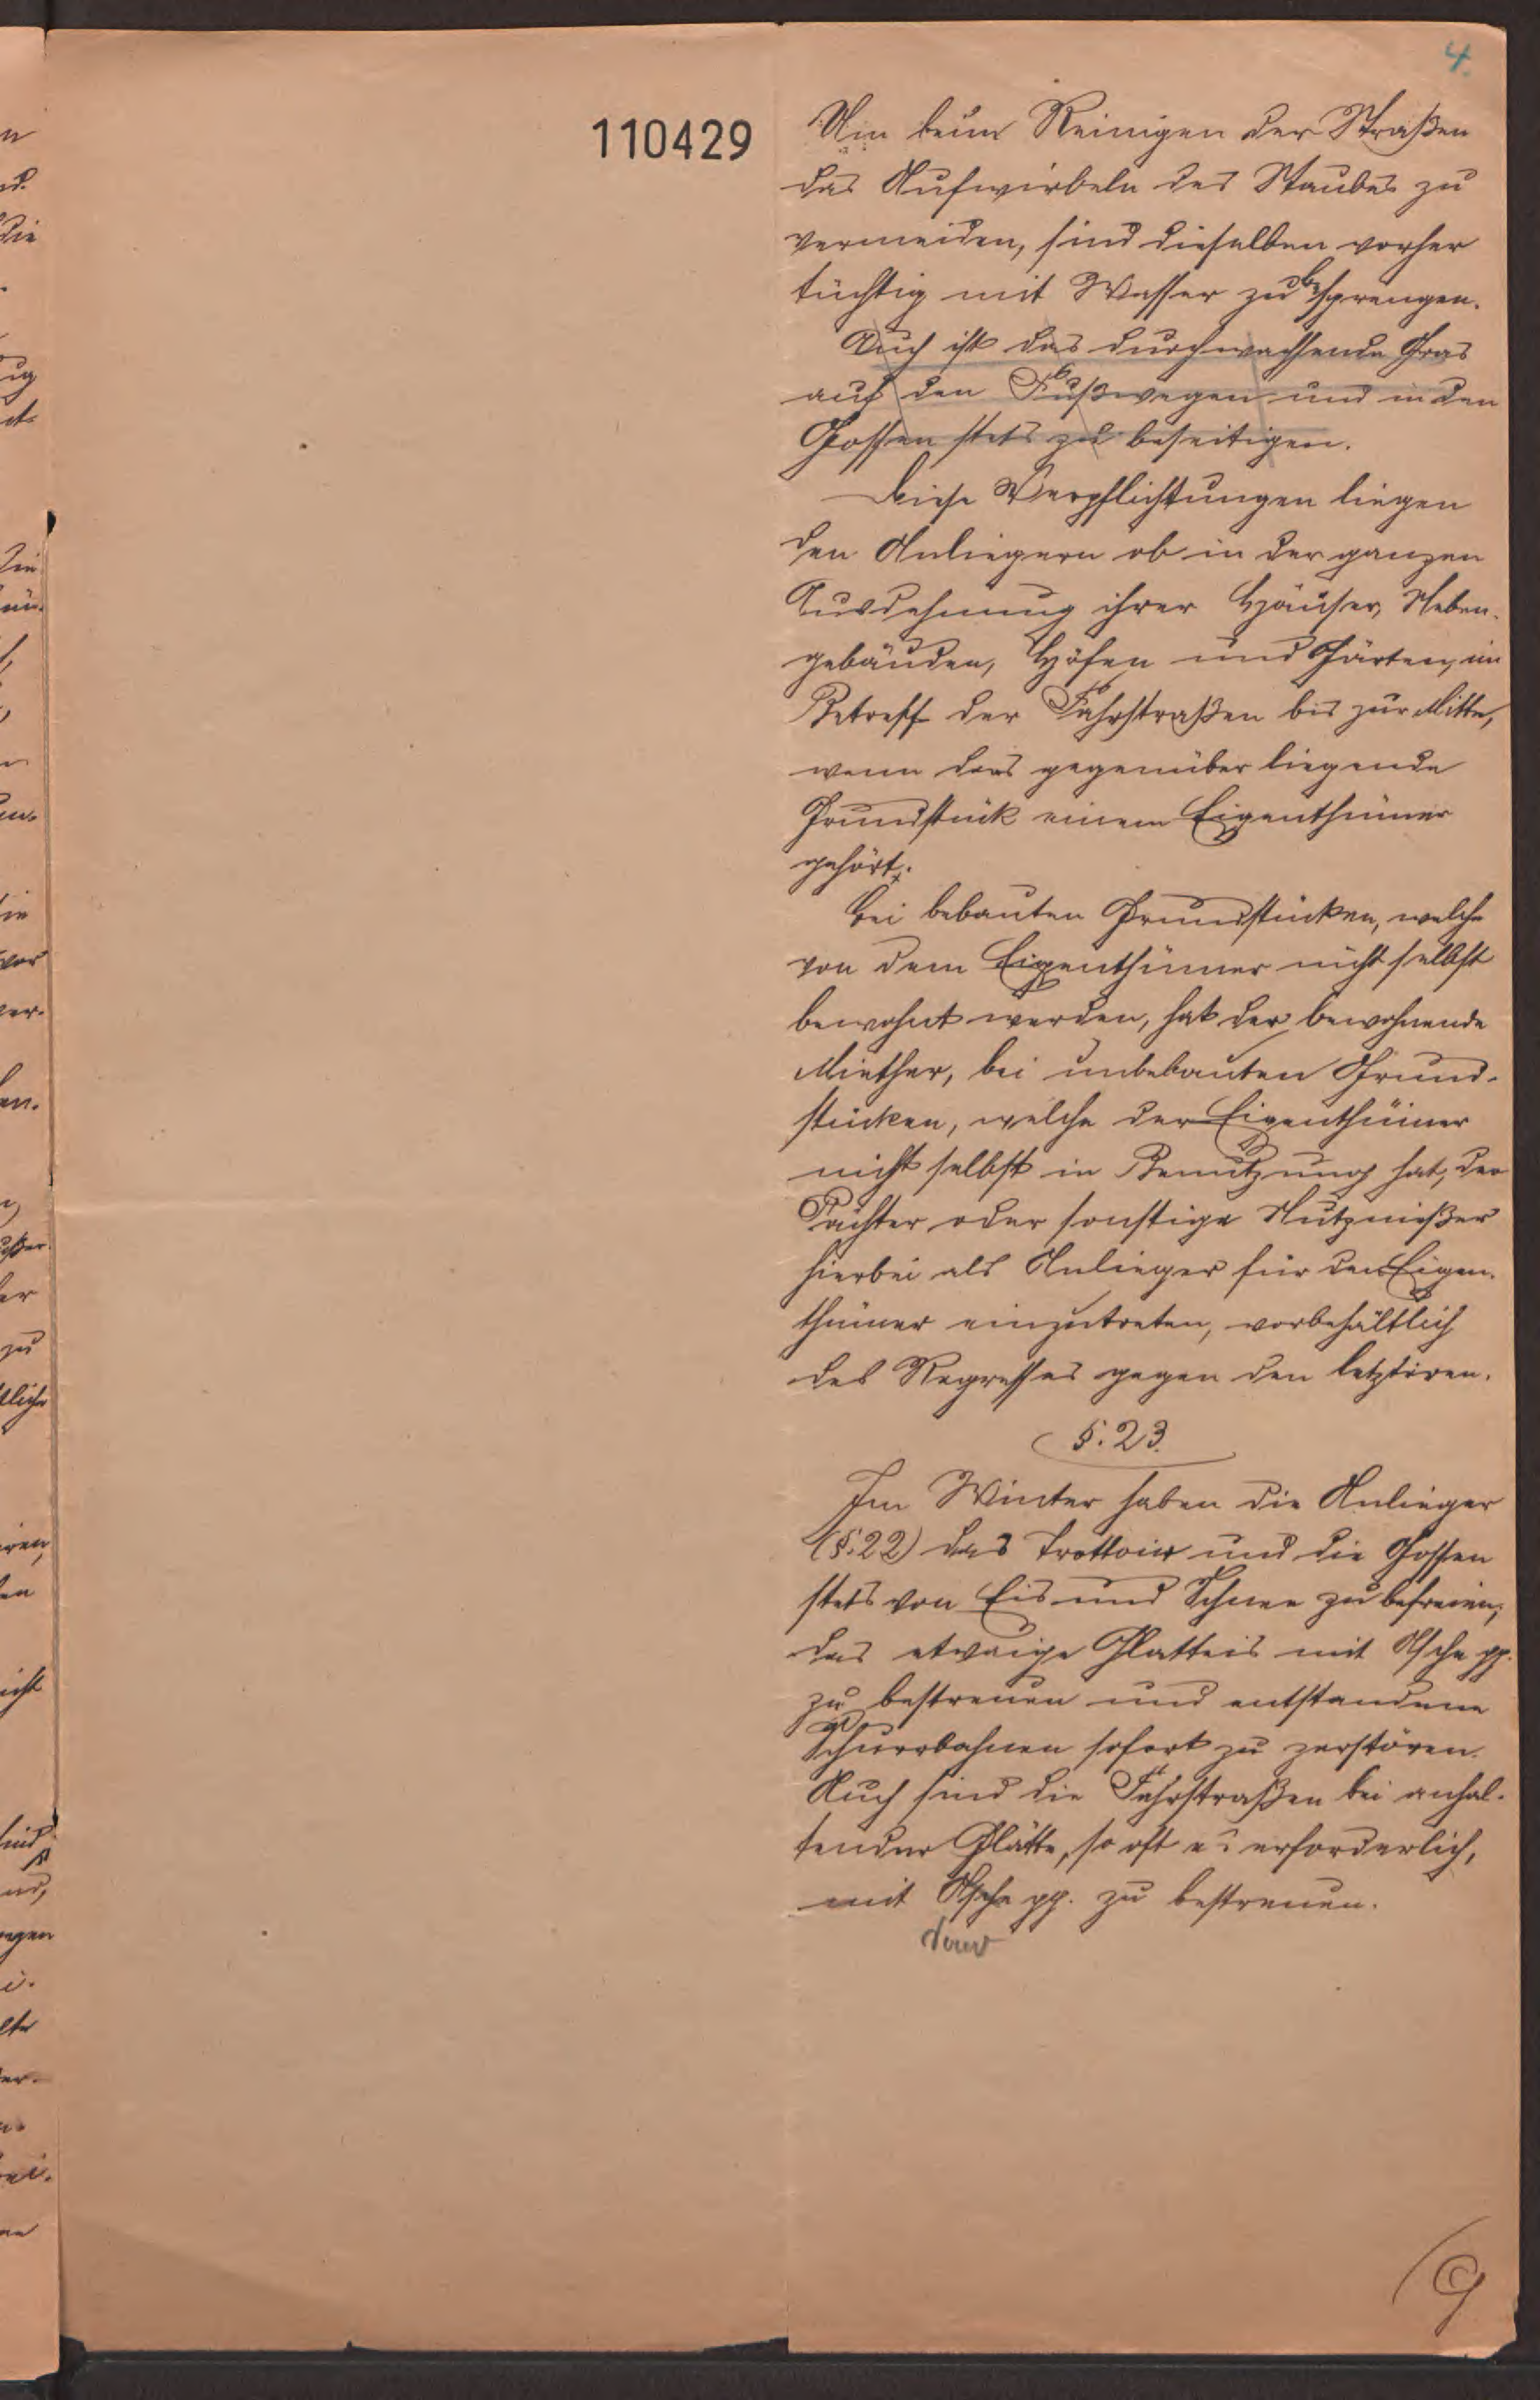 4.
110429
Um beim Reinigen der Straßen
das Aufwirbeln des Staubes zu
vermeiden, sind dieselben vorher
tüchtig mit Wasser zu besprengen.
Auch ist das durchwachsende Gras
auf den Fußwegen und in den
Gossen stets zu beseitigen.
Diese Verpflichtungen liegen
den Anliegern ob in der ganzen
Ausdehnung ihrer Häuser, Neben-
gebäuden, Höfen und Gärten, im
Betreff der Fahrstraßen bis zur Mitte,
wenn das gegenüber liegende
Grundstück einem Eigenthümer
gehört.
Bei bebauten Grundstücken, welche
von dem Eigenthümer nicht selbst
bewohnt werden, hat der bewohnende
Miether, bei unbebauten Grund-
stücken, welche der Eigenthümer
nicht selbst in Benutzung hat, der
Pächter oder sonstige Nutznießer
hierbei als Anlieger für den Eigen-
thümer einzutreten, vorbehältlich
des Regresses gegen den letzteren.
§. 23.
Im Winter haben die Anlieger
(§. 22) das Trottoir und die Gossen
stets von Eis und Schnee zu befreien,
das etwaige Glatteis mit Asche pp.
zu bestreuen und entstandene
Schurrbahnen sofort zu zerstören.
Auch sind die Fahrstraßen bei anhal-
tender Glätte, so oft es erforderlich,
mit Asche pp. zu bestreuen.